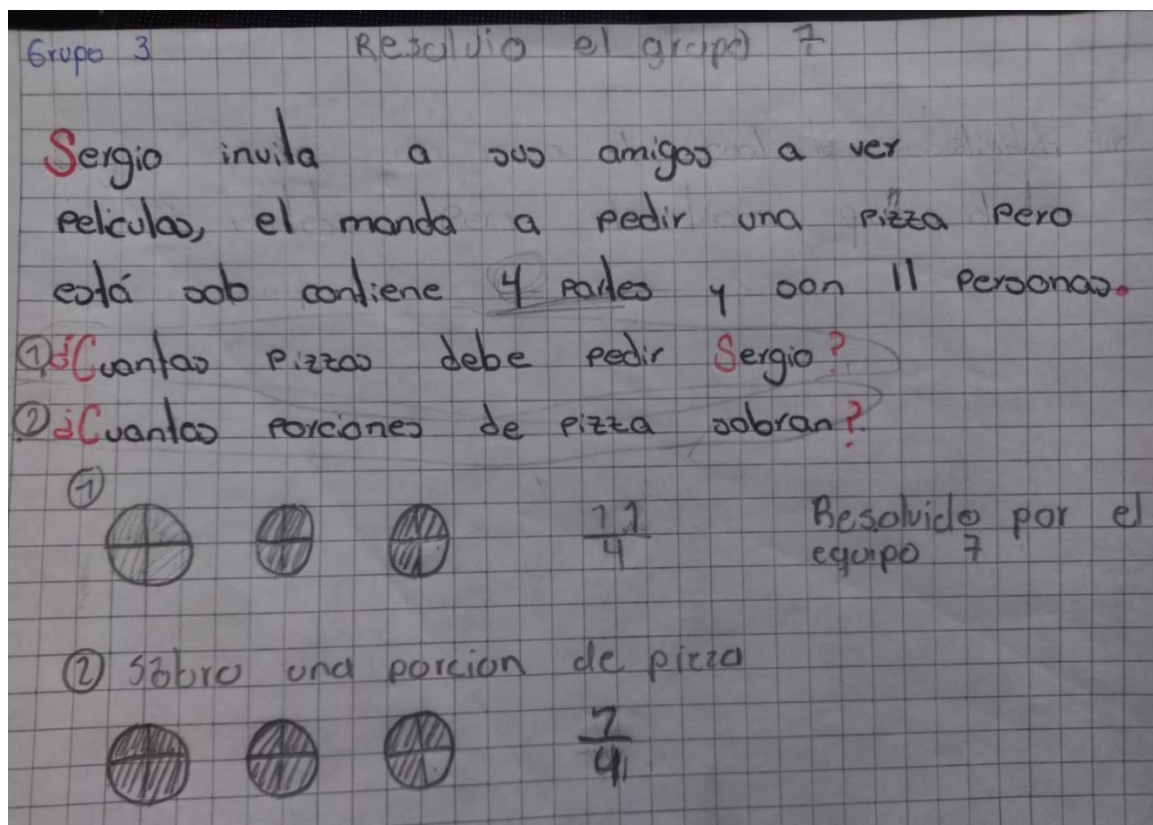 Grupo 3 Resolvio el grupo 7
Sergio invita a sus amigos a ver
peliculas, el manda a pedir una pizza pero
está solo contiene 4 partes y son 11 personas.
① ¿Cuantas pizzas debe pedir Sergio?
② ¿Cuantas porciones de pizza sobran?
①
11/4 Resolvido por el
equipo 7
② Sobro una porcion de pizza
1/4